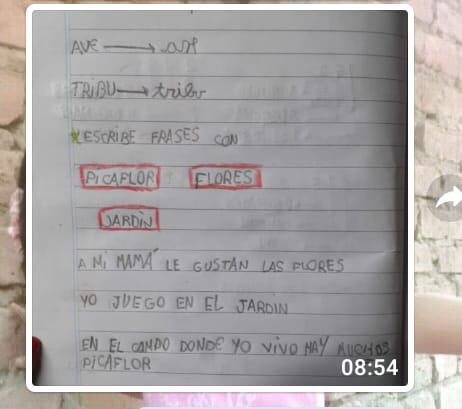 AVE → ave
TRIBU → tribu
ESCRIBE FRASES CON
PICAFLOR FLORES
JARDIN
A MI MAMÁ LE GUSTAN LAS FLORES
YO JUEGO EN EL JARDIN
EN EL CANDO DONDE YO VIVO HAY MUCHOS
PICAFLOR
08:54